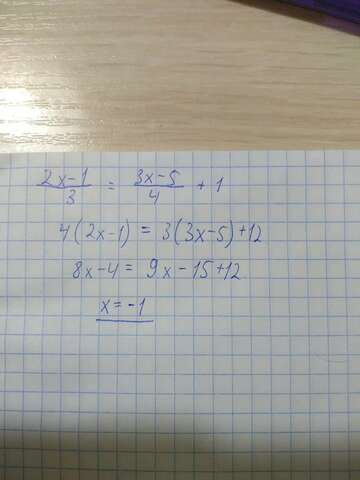 2x-1/3 = 3x-5/4 + 1
4(2x-1) = 3(3x-5)+12
8x-4= 9x-15+12
x=-1